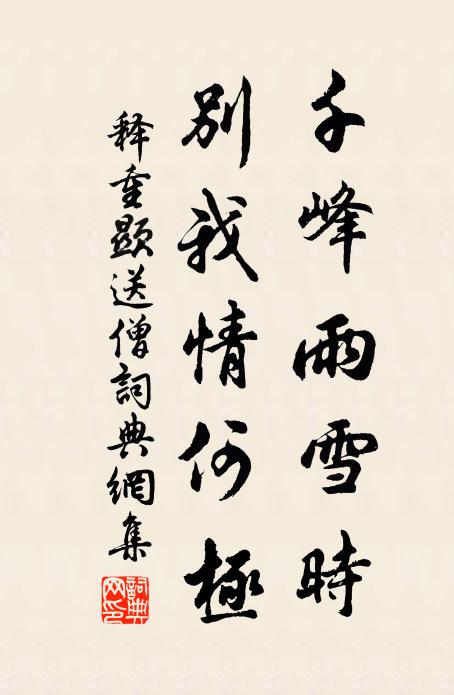 千峰雨雪時
別我情何極
释重顯送僧詞典網集
詞典網印